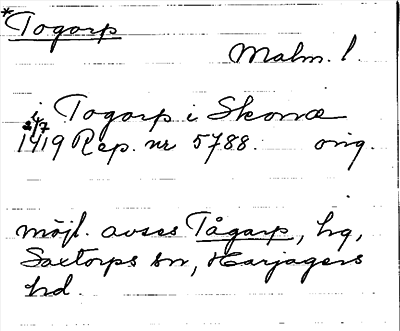 *Togarp
Malm. l.
i Togarp i Skonæ
3/7
1419 Rep. nr 5788. orig.
möjl. avses Tågarp, hg,
Saxtorps sn, Harjagers
hd.